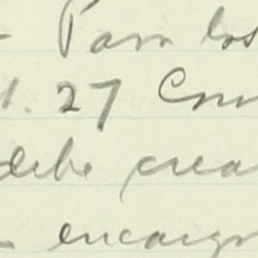 - Para los
. 27 Com
debe crea
encarg